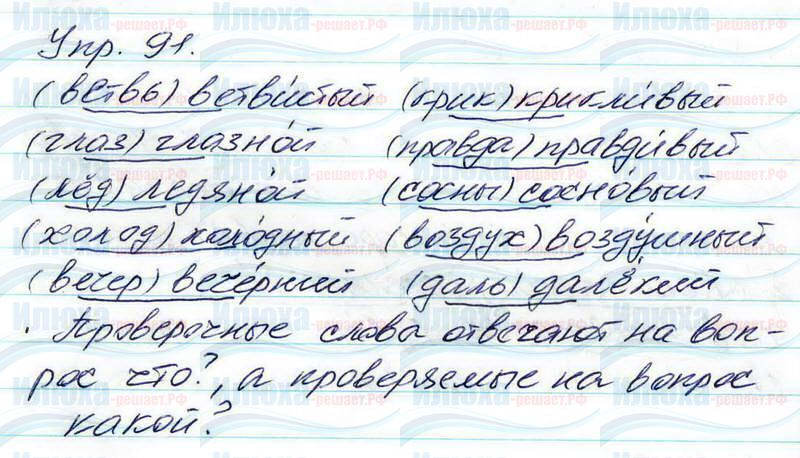 Упр. 91.
(ветвь) ветви́стый (крик) крикли́вый
(глаз) глазно́й (правда) правди́вый
(лёд) ледяно́й (сосны) сосно́вый
(холод) холо́дный (воздух) возду́шный
(вечер) вече́рний (даль) далёкий
. Проверочные слова отвечают на воп-
рос что?, а проверяемые на вопрос
какой?